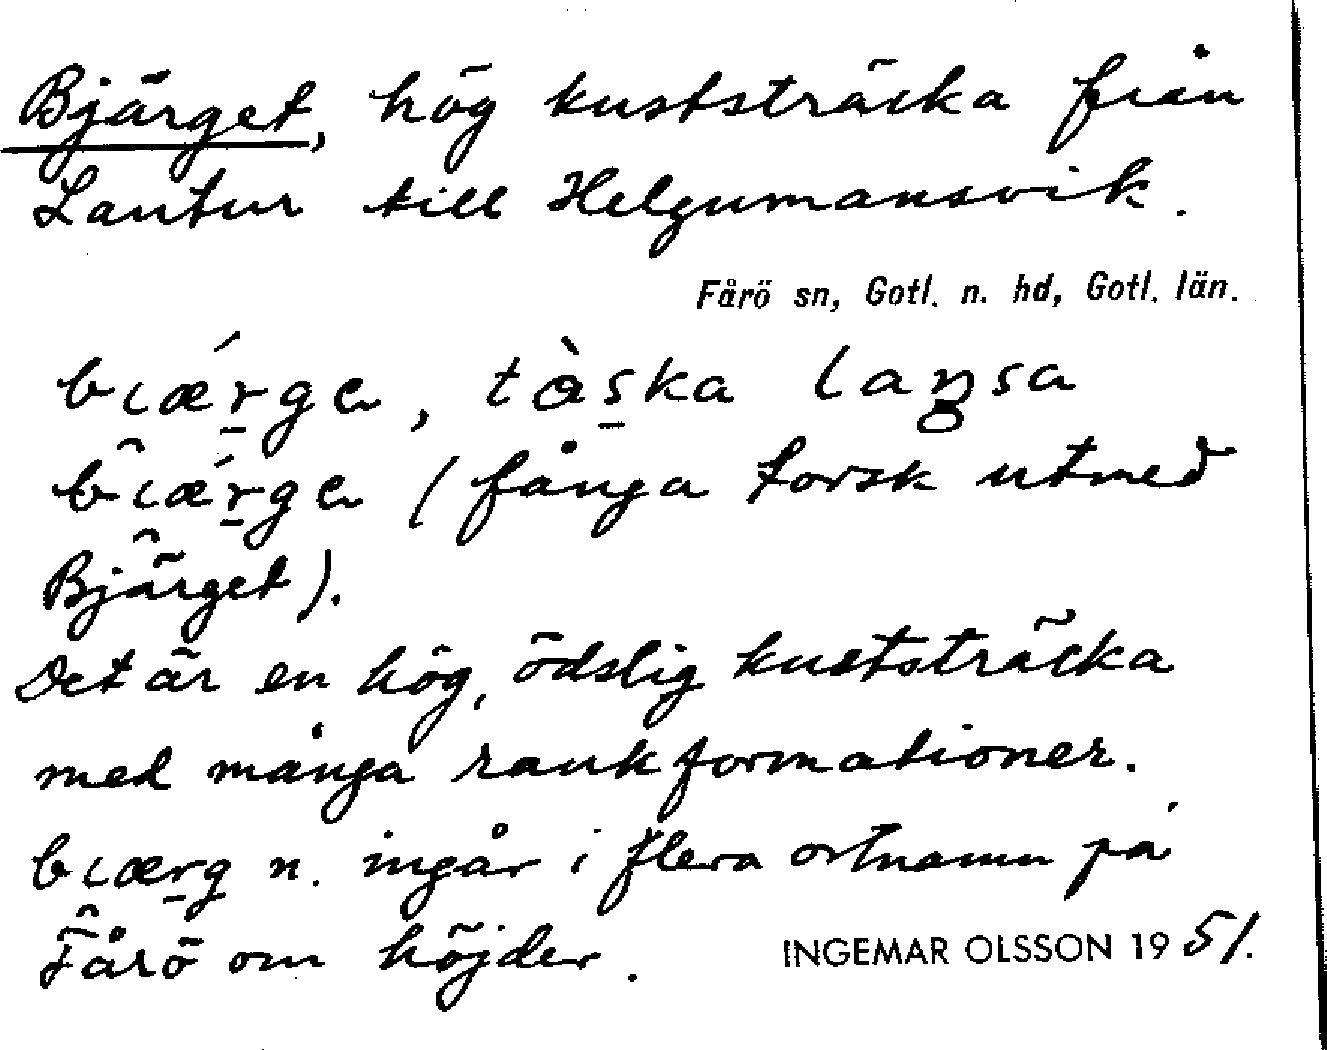 Bjärget, hög kuststräcka från
Lautur till Helgumansvik.
Fårö sn, Gotl. n. hd, Gotl. län.
bıǽr̠ge, tàs̠ka laŋsa
bıǽr̠ge (fånga torsk utmed
Bjärget).
Det är en hög, ödslig kuststräcka
med många raukformationer.
bıær̠g n. ingår i flera ortnamn på
Fårö om höjder. INGEMAR OLSSON 1951.